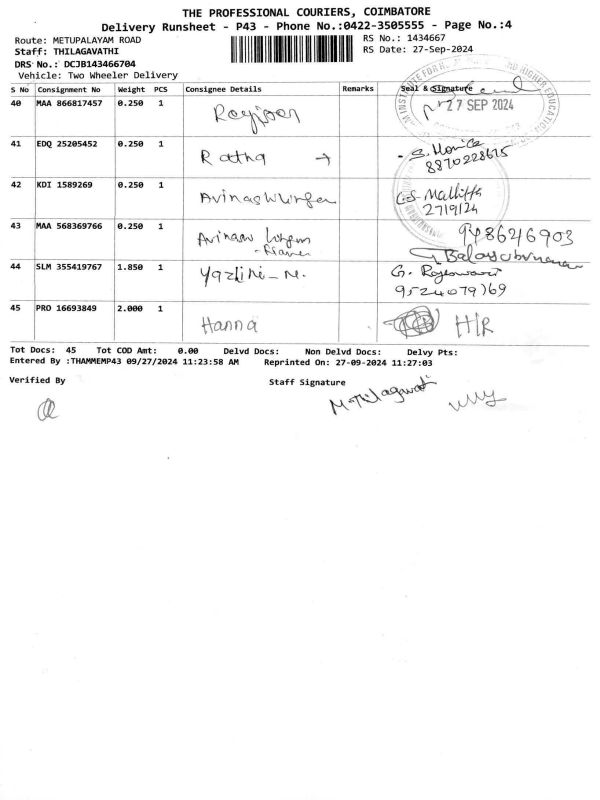 THE PROFESSIONAL COURIERS, COIMBATORE
Delivery Runsheet - P43 - Phone No.:0422-3505555 - Page No.:4
Route: METUPALAYAM ROAD RS No.: 1434667
Staff: THILAGAVATHI RS Date: 27-Sep-2024
DRS No.: DCJB143466704
Vehicle: Two Wheeler Delivery
S No Consignment No Weight PCS Consignee Details Remarks Seal & Signature
40 MAA 866817457 0.250 1 27 SEP 2024
41 EDQ 25205452 0.250 1 Ratna → - S. Monica
8870228615
42 KDI 1589269 0.250 1 G.S. Mallika
27/9/24
43 MAA 568369766 0.250 1 9486246903
Balasubramanian
44 SLM 355419767 1.850 1 Yazlini - M. G. Rajeswari
9524079169
45 PRO 16693849 2.000 1 Hanna H/R
Tot Docs: 45 Tot COD Amt: 0.00 Delvd Docs: Non Delvd Docs: Delvy Pts:
Entered By :THAMMEMP43 09/27/2024 11:23:58 AM Reprinted On: 27-09-2024 11:27:03
Verified By Staff Signature
M. Thilagavathi